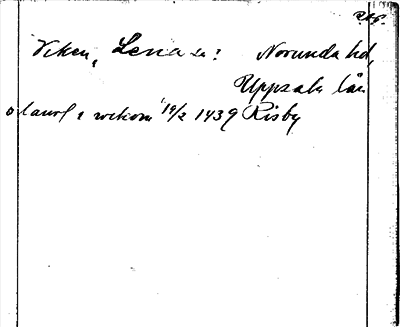 Viken, Lena sn: Norunda hd,
Uppsala län
olauof i wikom 14/2 1439 Risby